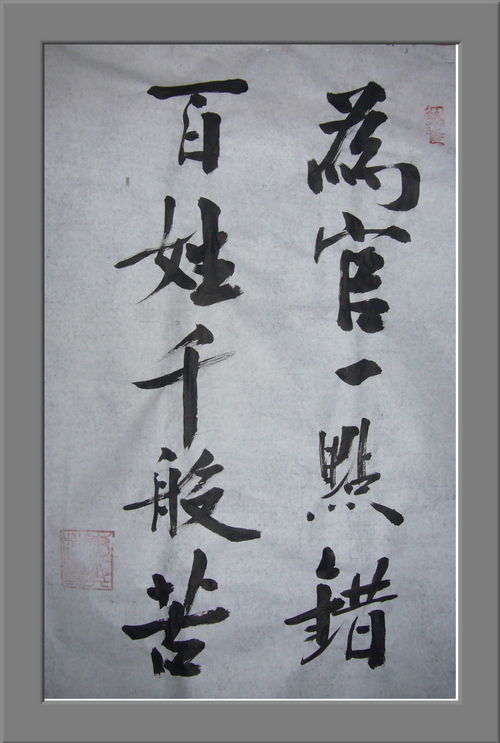 為官一點錯
百姓千般苦